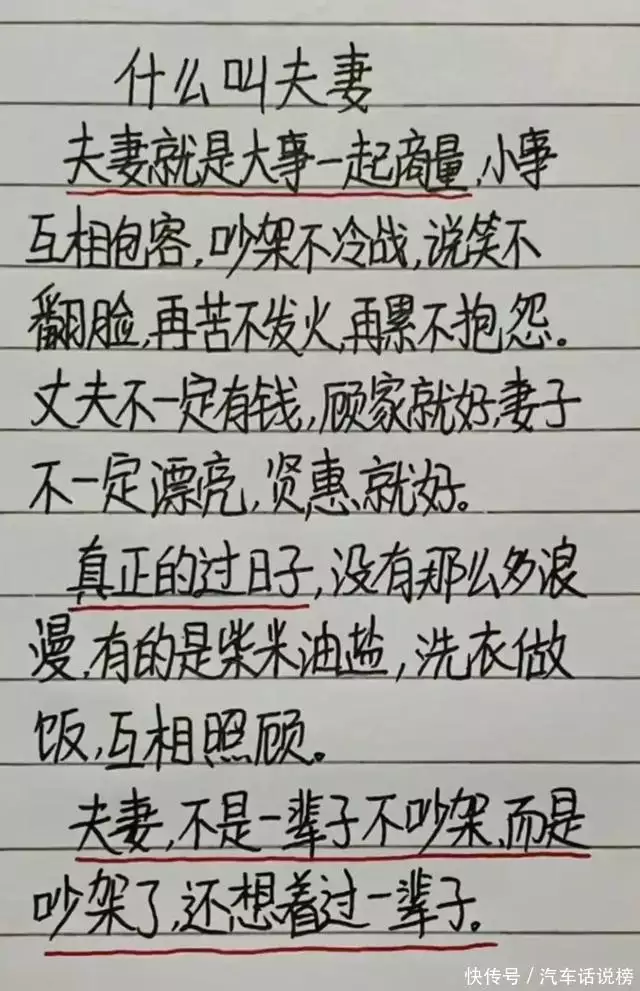 什么叫夫妻
夫妻就是大事一起商量，小事
互相包容，吵架不冷战，说笑不
翻脸，再苦不发火，再累不抱怨。
丈夫不一定有钱，顾家就好，妻子
不一定漂亮，贤惠就好。
真正的过日子，没有那么多浪
漫，有的是柴米油盐，洗衣做
饭，互相照顾。
夫妻，不是一辈子不吵架，而是
吵架了，还想着过一辈子。
快传号／汽车话说榜